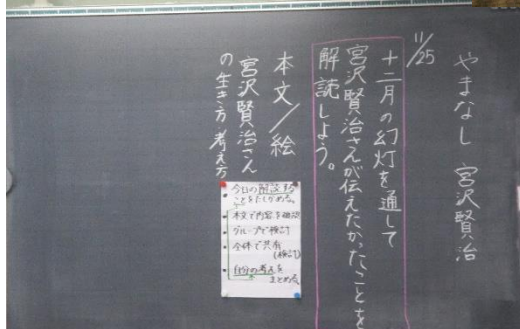 やまなし 宮沢賢治
11/25
十二月の幻灯を通して
宮沢賢治さんが伝えたかったことを
解読しよう。
本文/絵
宮沢賢治さん
の生き方 考え方
今日の解読する
ことをたしかめる。
本文で内容を確認
グループで検討
全体で共有
(検討)
自分の考えを
まとめる